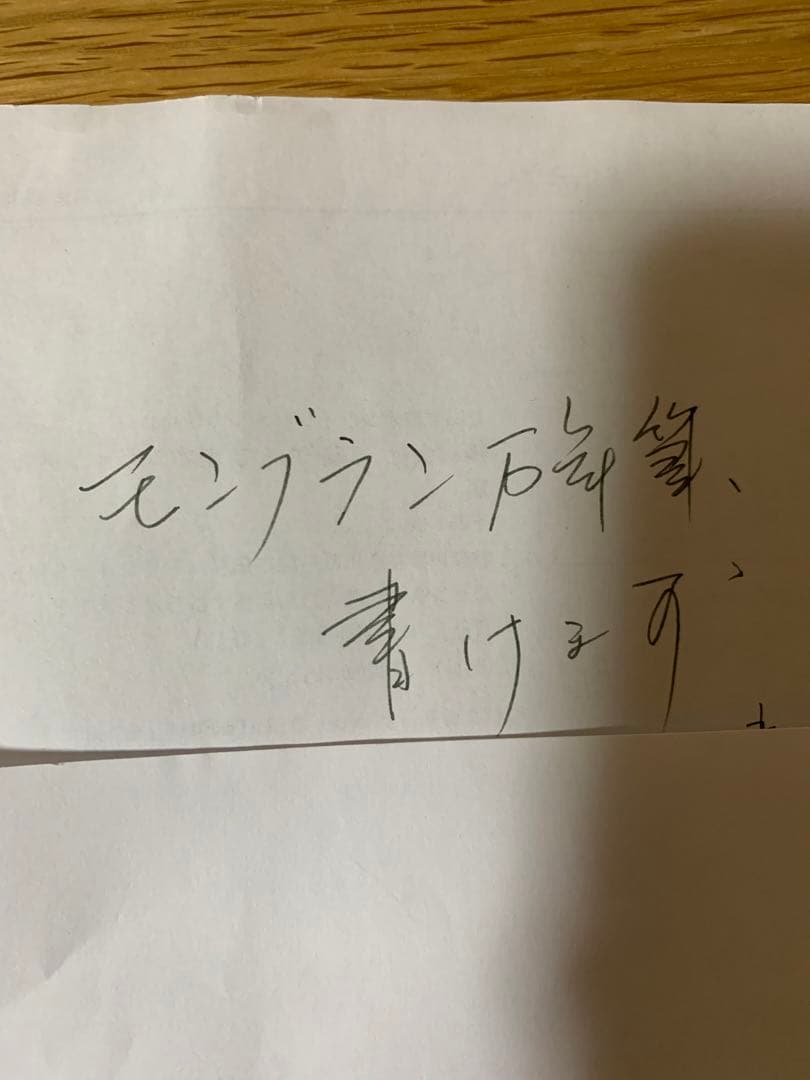 モンブラン万年筆、
書けます、